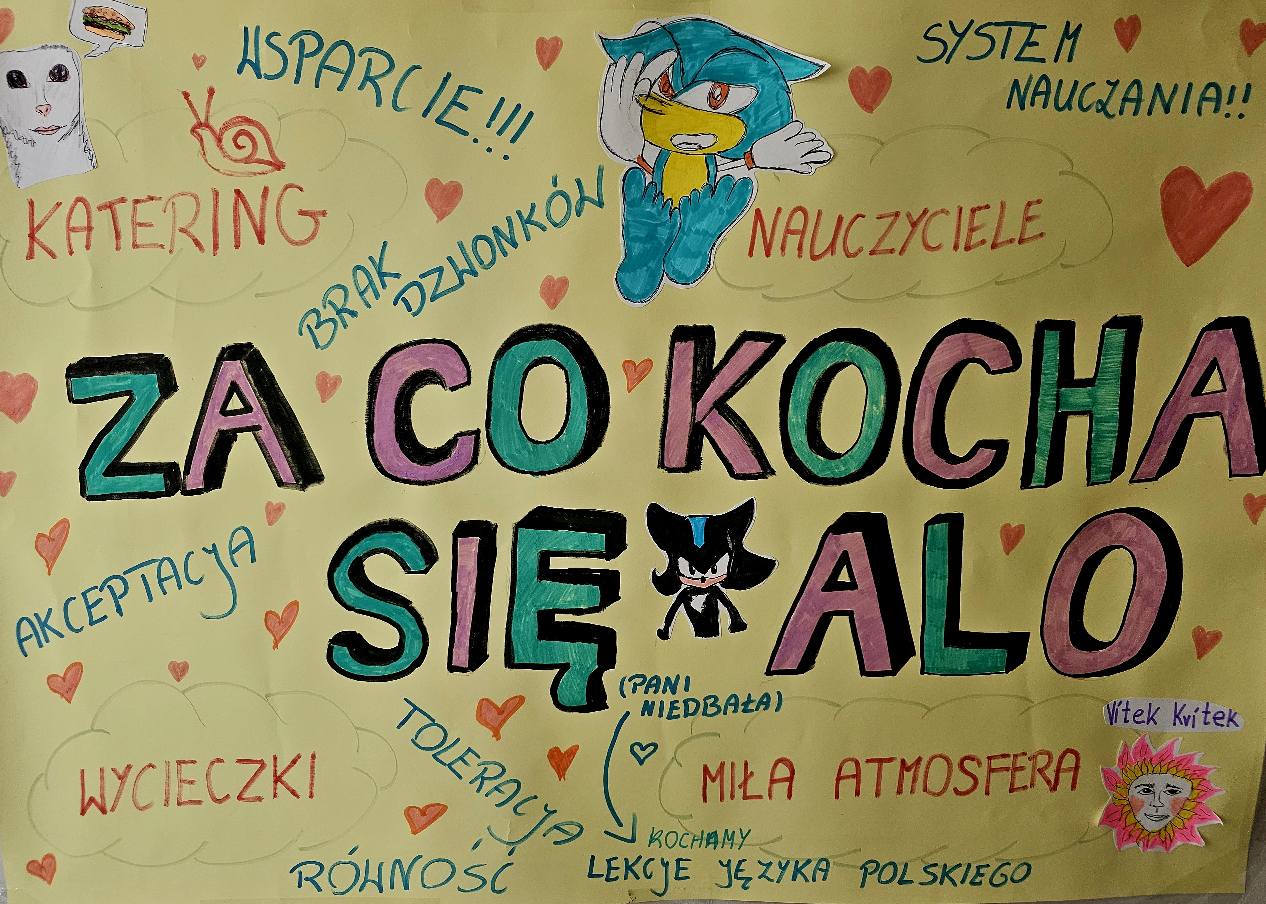 WSPARCIE!!!
SYSTEM
NAUCZANIA!!
KATERING
BRAK
DZWONKÓW
NAUCZYCIELE
ZA CO KOCHA
SIĘ ALO
AKCEPTACJA
(PANI
NIEDBAŁA)
TOLERACJA
Vitek Kvitek
WYCIECZKI
MIŁA ATMOSFERA
KOCHAMY
RÓWNOŚĆ
LEKCJE JĘZYKA POLSKIEGO